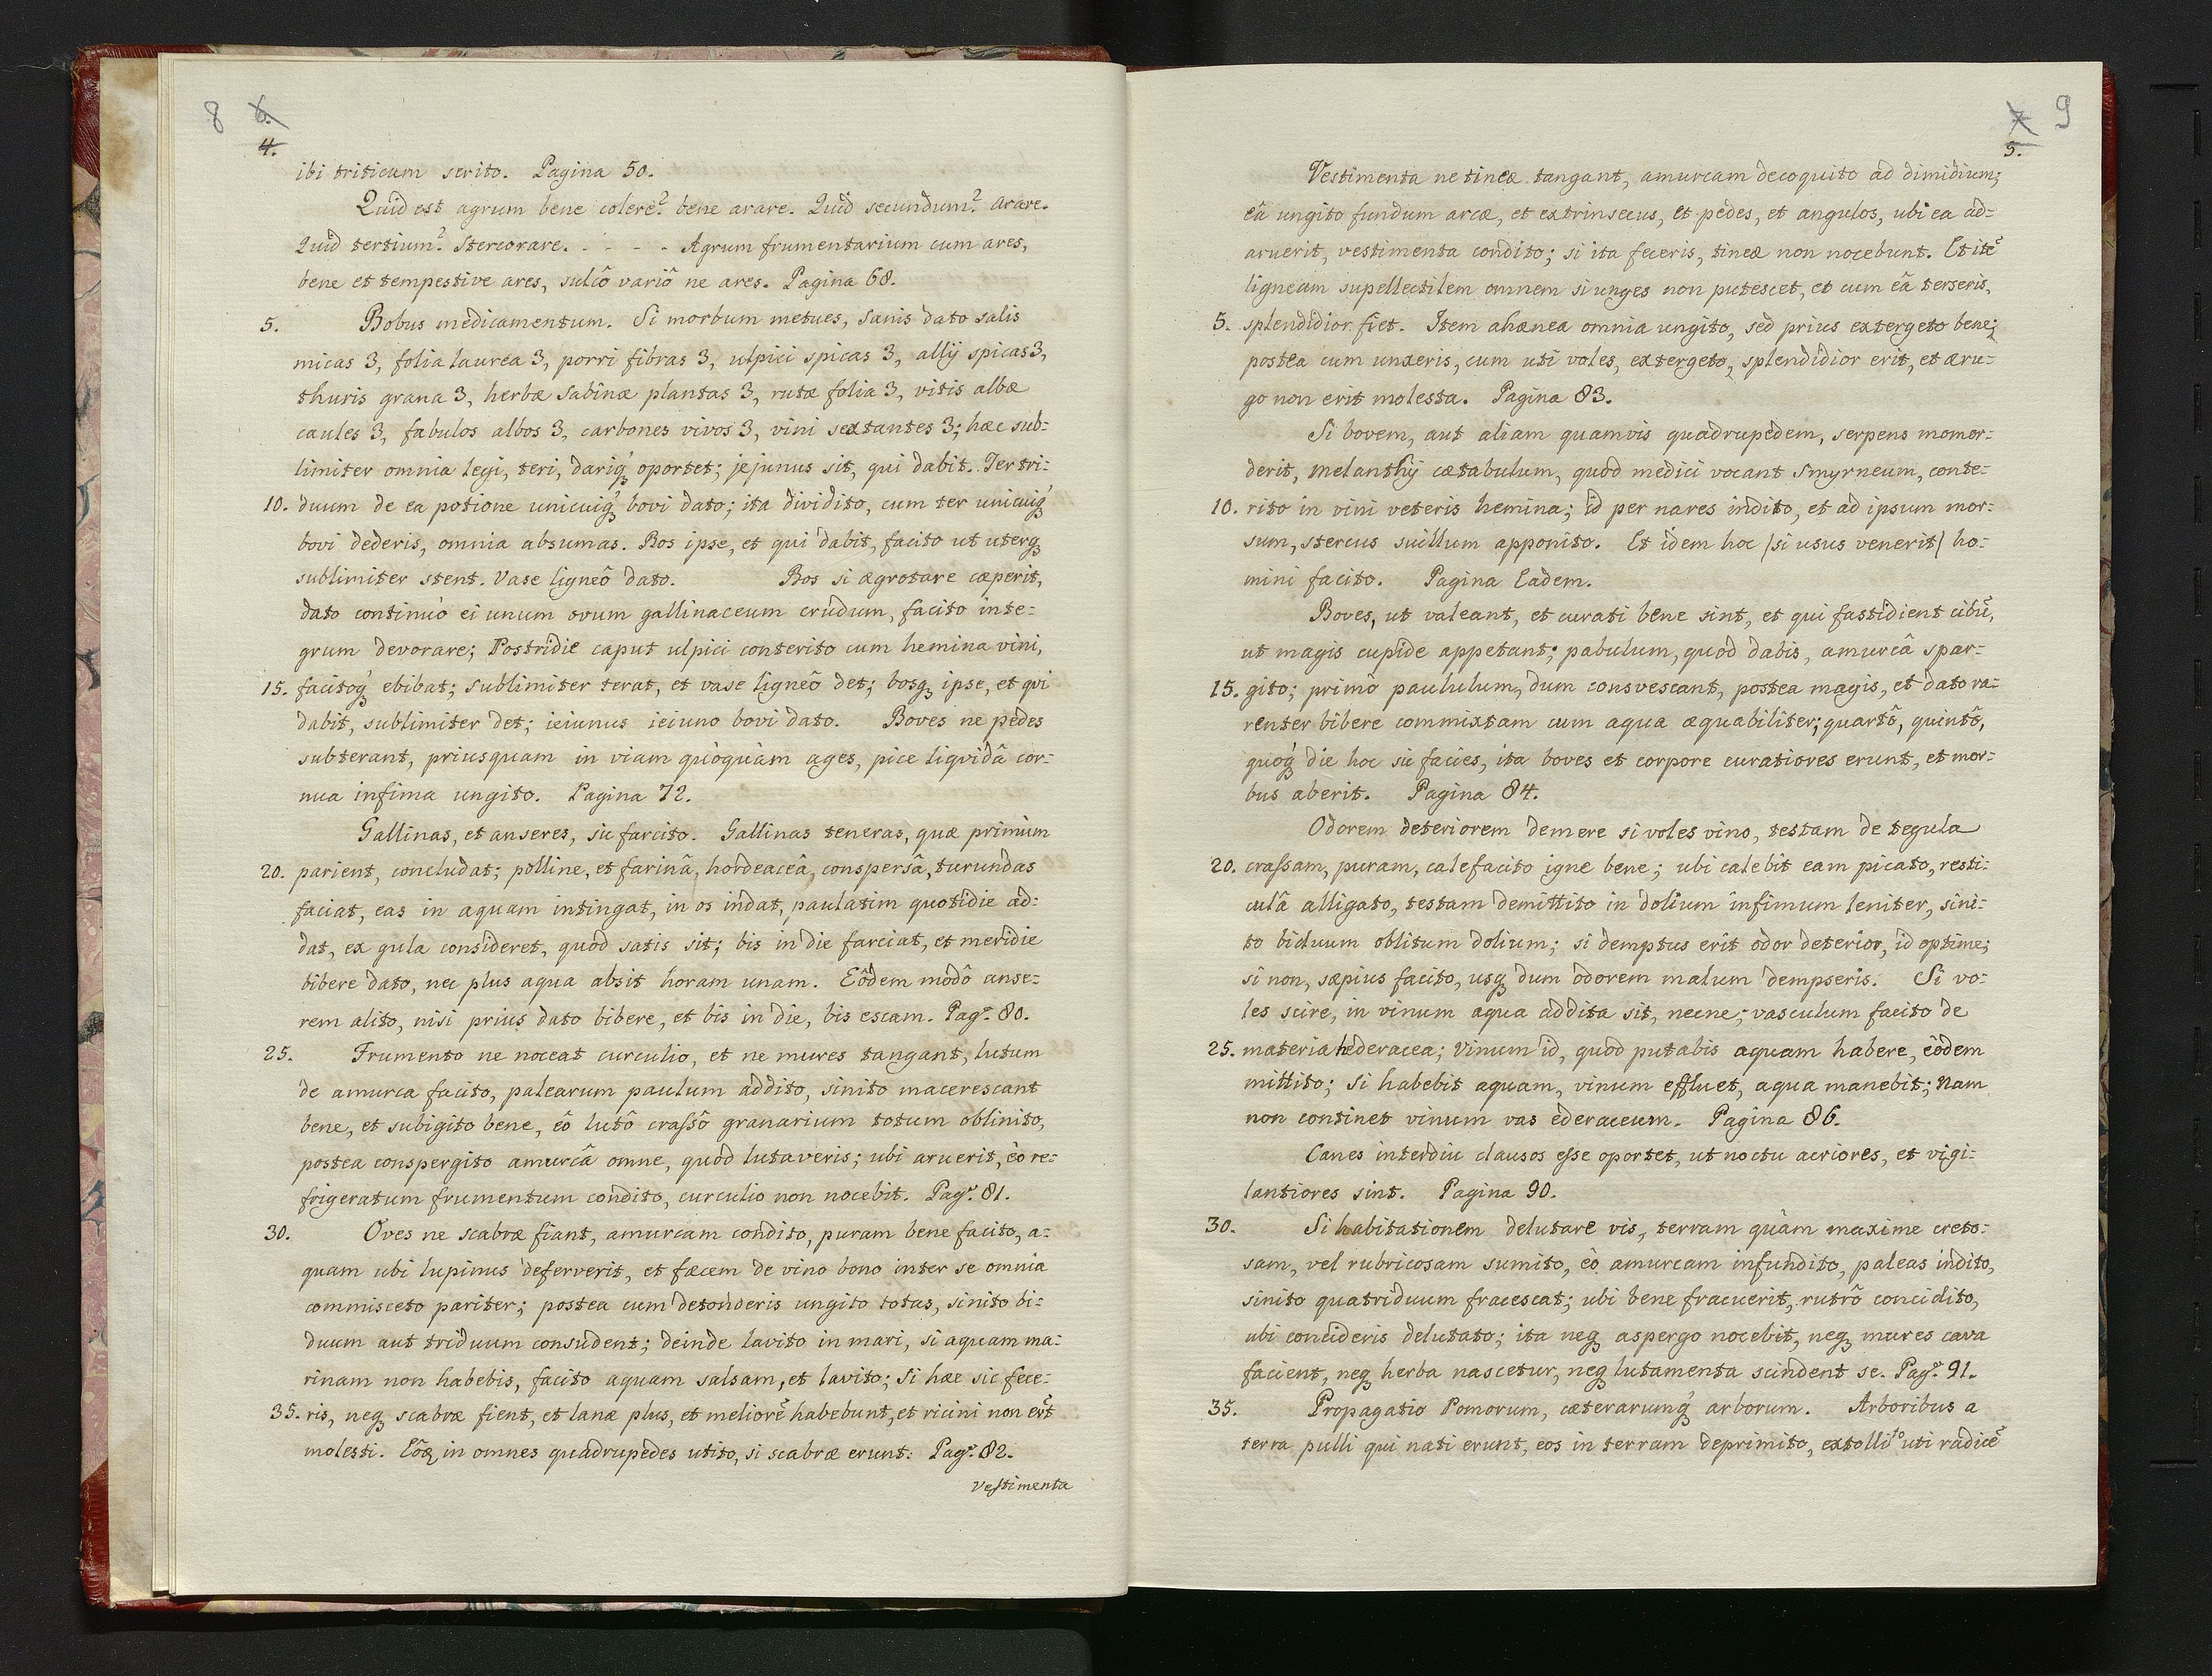 8 6.
4.
ibi triticum serito. Pagina 50.
Quid est agrum bene colere? bene arare. Quid secundum? arare.
Quid tertium? Stercorare. - - - - Agrum frumentarium cum ares,
bene et tempestive ares, sulcô variô ne ares. Pagina 68.
5. Bobus medicamentum. Si morbum metues, Sanis dato salis
micas 3, folia laurea 3, porri fibras 3, ulpici spicas 3, allij spicas 3,
thuris grana 3, herbæ Sabinæ plantas 3, rutæ folia 3, vitis albæ
caules 3, fabulos albos 3, carbones vivos 3, vini sextantes 3; hæc sub=
limiter omnia legi, teri, dariq́ oportet; jejunus sit, qui dabit. Per tri=
10. duum de ea potione unicuiq́ bovi dato; ita dividito, cum ter unicuiq́
bovi dederis, omnia absumas. Bos ipse, et qui dabit, facito ut uterq
sublimiter stent. Vase ligneô dato. Bos si ægrotare cæperit,
dato continuò ei unum ovum gallinaceum crudum, facito inte=
grum devorare; Postridie caput ulpici conterito cum hemina vini,
15. facitoq́ ebibat; sublimiter terat, et vase ligneô det; bosq ipse, et qui
dabit, sublimiter det; ieiunus ieiuno bovi dato. Boves ne pedes
subterant, priusquam in viam quòquàm ages, pice liqvidâ cor=
nua infima ungito. Pagina 72.
Gallinas, et anseres, sic farcito. Gallinas teneras, quæ primùm
20. parient, concludat; polline, et farinâ, hordeaceâ, conspersâ, turundas
faciat, eas in aquam intingat, in os indat, paulatim quotidie ad=
dat, ex gula consideret, quod satis sit; bis in die farciat, et meridie
bibere dato, nec plus aqua absit horam unam. Eôdem modô anse=
rem alito, nisi prius dato bibere, et bis in die, bis escam. Pagᵃ. 80.
25. Frumento ne noceat curculio, et ne mures tangant, lutum
de amurca facito, palearum paulum addito, sinito macerescant
bene, et subigito bene, eô lutô craſsô granarium totum oblinito,
postea conspergito amurcâ omne, quod lutaveris; ubi aruerit, eò re=
frigeratum frumentum condito, curculio non nocebit. Pagᵃ. 81.
30. Oves ne scabræ fiant, amurcam condito, puram bene facito, a=
quam ubi lupinus deferverit, et fæcem de vino bono inter se omnia
commisceto pariter; postea cum detonderis ungito totas, sinito bi=
duum aut triduum consudent; deinde lavito in mari, si aquam ma=
rinam non habebis, facito aquam salsam, et lavito; Si hæc sic fece=
35. ris, neq scabræ fient, et lanæ plus, et meliorē habebunt, et ricini non erūt
molesti. Eôq in omnes quadrupedes utito, si scabræ erunt. Pagᵃ. 82.
Veſtimenta
7 9
5.
Vestimenta ne tineæ tangant, amurcam decoquito ad dimidium;
eâ ungito fundum arcæ, et extrinsecus, et pedes, et angulos, ubi ea ad=
aruerit, vestimenta condito; si ita feceris, tineæ non nocebunt. Et itē
ligneam supellectilem omnem si unges non putescet, et cum eâ terseris,
5. splendidior fiet. Item ahænea omnia ungito, sed prius extergeto bene;
postea cum unxeris, cum uti voles, extergeto, splendidior erit, et æru=
go non erit molesta. Pagina 83.
Si bovem, aut aliam quamvis quadrupedem, serpens momor=
derit, melanthij cætabulum, quod medici vocant Smyrneum, conte=
10. rito in vini veteris hemina; id per nares indito, et ad ipsum mor=
sum, stercus suillum apponito. Et idem hoc /si usus venerit/ ho=
mini facito. Pagina Eadem.
Boves, ut valeant, et curati bene sint, et qui fastidient cibū,
ut magis cupide appetant; pabulum, quod dabis, amurcâ spar=
15. gito; primô paululum, dum consvescant, postea magis, et dato ra=
renter bibere commixtam cum aqua æquabiliter; quartô, quintô,
quoq́ die hoc sic facies, ita boves et corpore curatiores erunt, et mor=
bus aberit. Pagina 84.
Odorem deteriorem demere si voles vino, testam de tegula
20. craſsam, puram, calefacito igne bene; ubi calebit eam picato, resti=
culâ alligato, testam demittito in dolium infimum leniter, sini=
to biduum oblitum dolium; si demptus erit odor deterior, id optime;
si non, sæpius facito, usq dum odorem malum dempseris. Si vo=
les scire, in vinum aqua addita sit, necne; vasculum facito de
25. materia hederacea; Vinum id, quod putabis aquam habere, eôdem
mittito; Si habebit aquam, vinum effluet, aqua manebit; Nam
non continet vinum vas ederaceum. Pagina 86.
Canes interdiu clausos eſse oportet, ut noctu acriores, et vigi=
lantiores sint. Pagina 90.
30. Si habitationem delutare vis, terram quàm maxime creto=
sam, vel rubricosam sumito, eò amurcam infundito, paleas indito,
sinito quatriduum fracescat; ubi bene fracuerit, rutrô concidito,
ubi concideris delutato; ita neq aspergo nocebit, neq mures cava
facient, neq herba nascetur, neq lutamenta scindent se. Pagᵃ. 91.
35. Propagatio Pomorum, cæterarumq́ arborum. Arboribus a
terra pulli qui nati erunt, eos in terram deprimito, extollitᵒ uti radicē